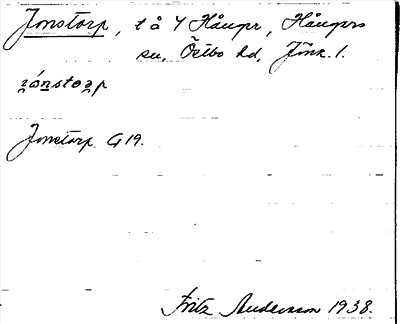 Jonstorp, t å 4 Hånger, Hångers
sn, Östbo hd, Jönk. l.
Jonstorp G 19.
Fritz Andersson 1938.